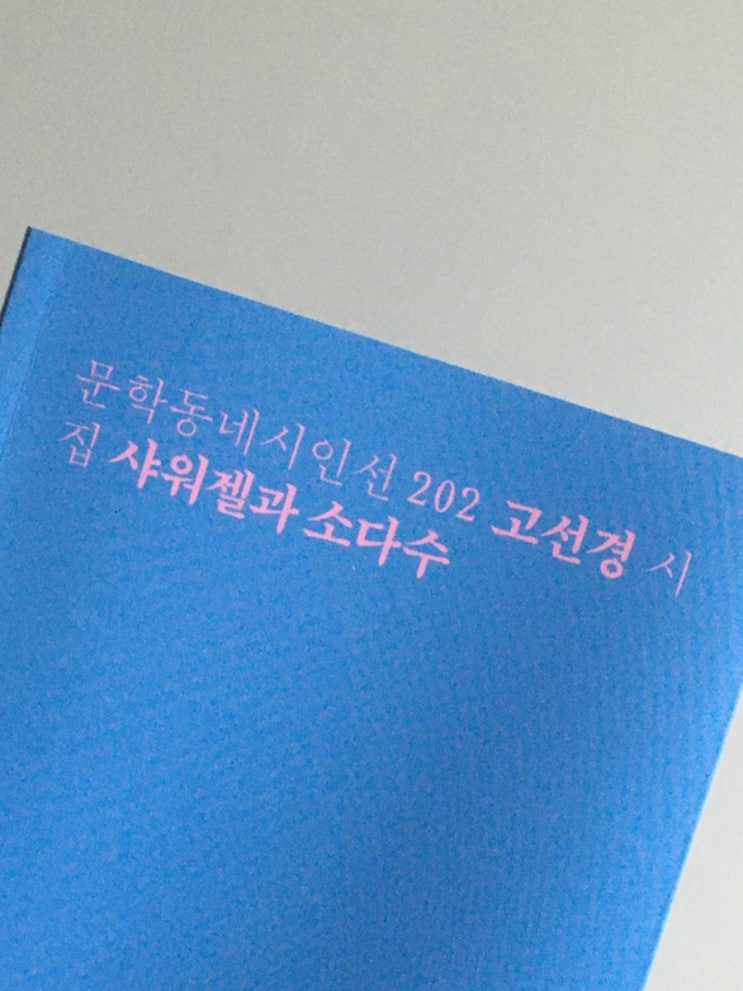 문학동네시인선 202 고선경 시
집 샤워젤과 소다수